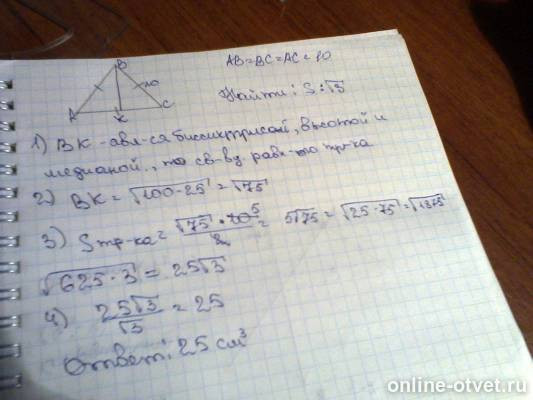 B
10
A
K
C
AB=BC=AC=10
Найти: S:√3
1) BK - явл-ся биссиктрисой, высотой и
медианой., по св-ву равн-го тр-ка
2) BK = √100-25 = √75
3) S тр-ка = √75 · 10 5 / 2 = 5√75 = √25·75 = √1875
√625·3 = 25√3
4) 25√3 / √3 = 25
Ответ: 25 см³
online-otvet.ru